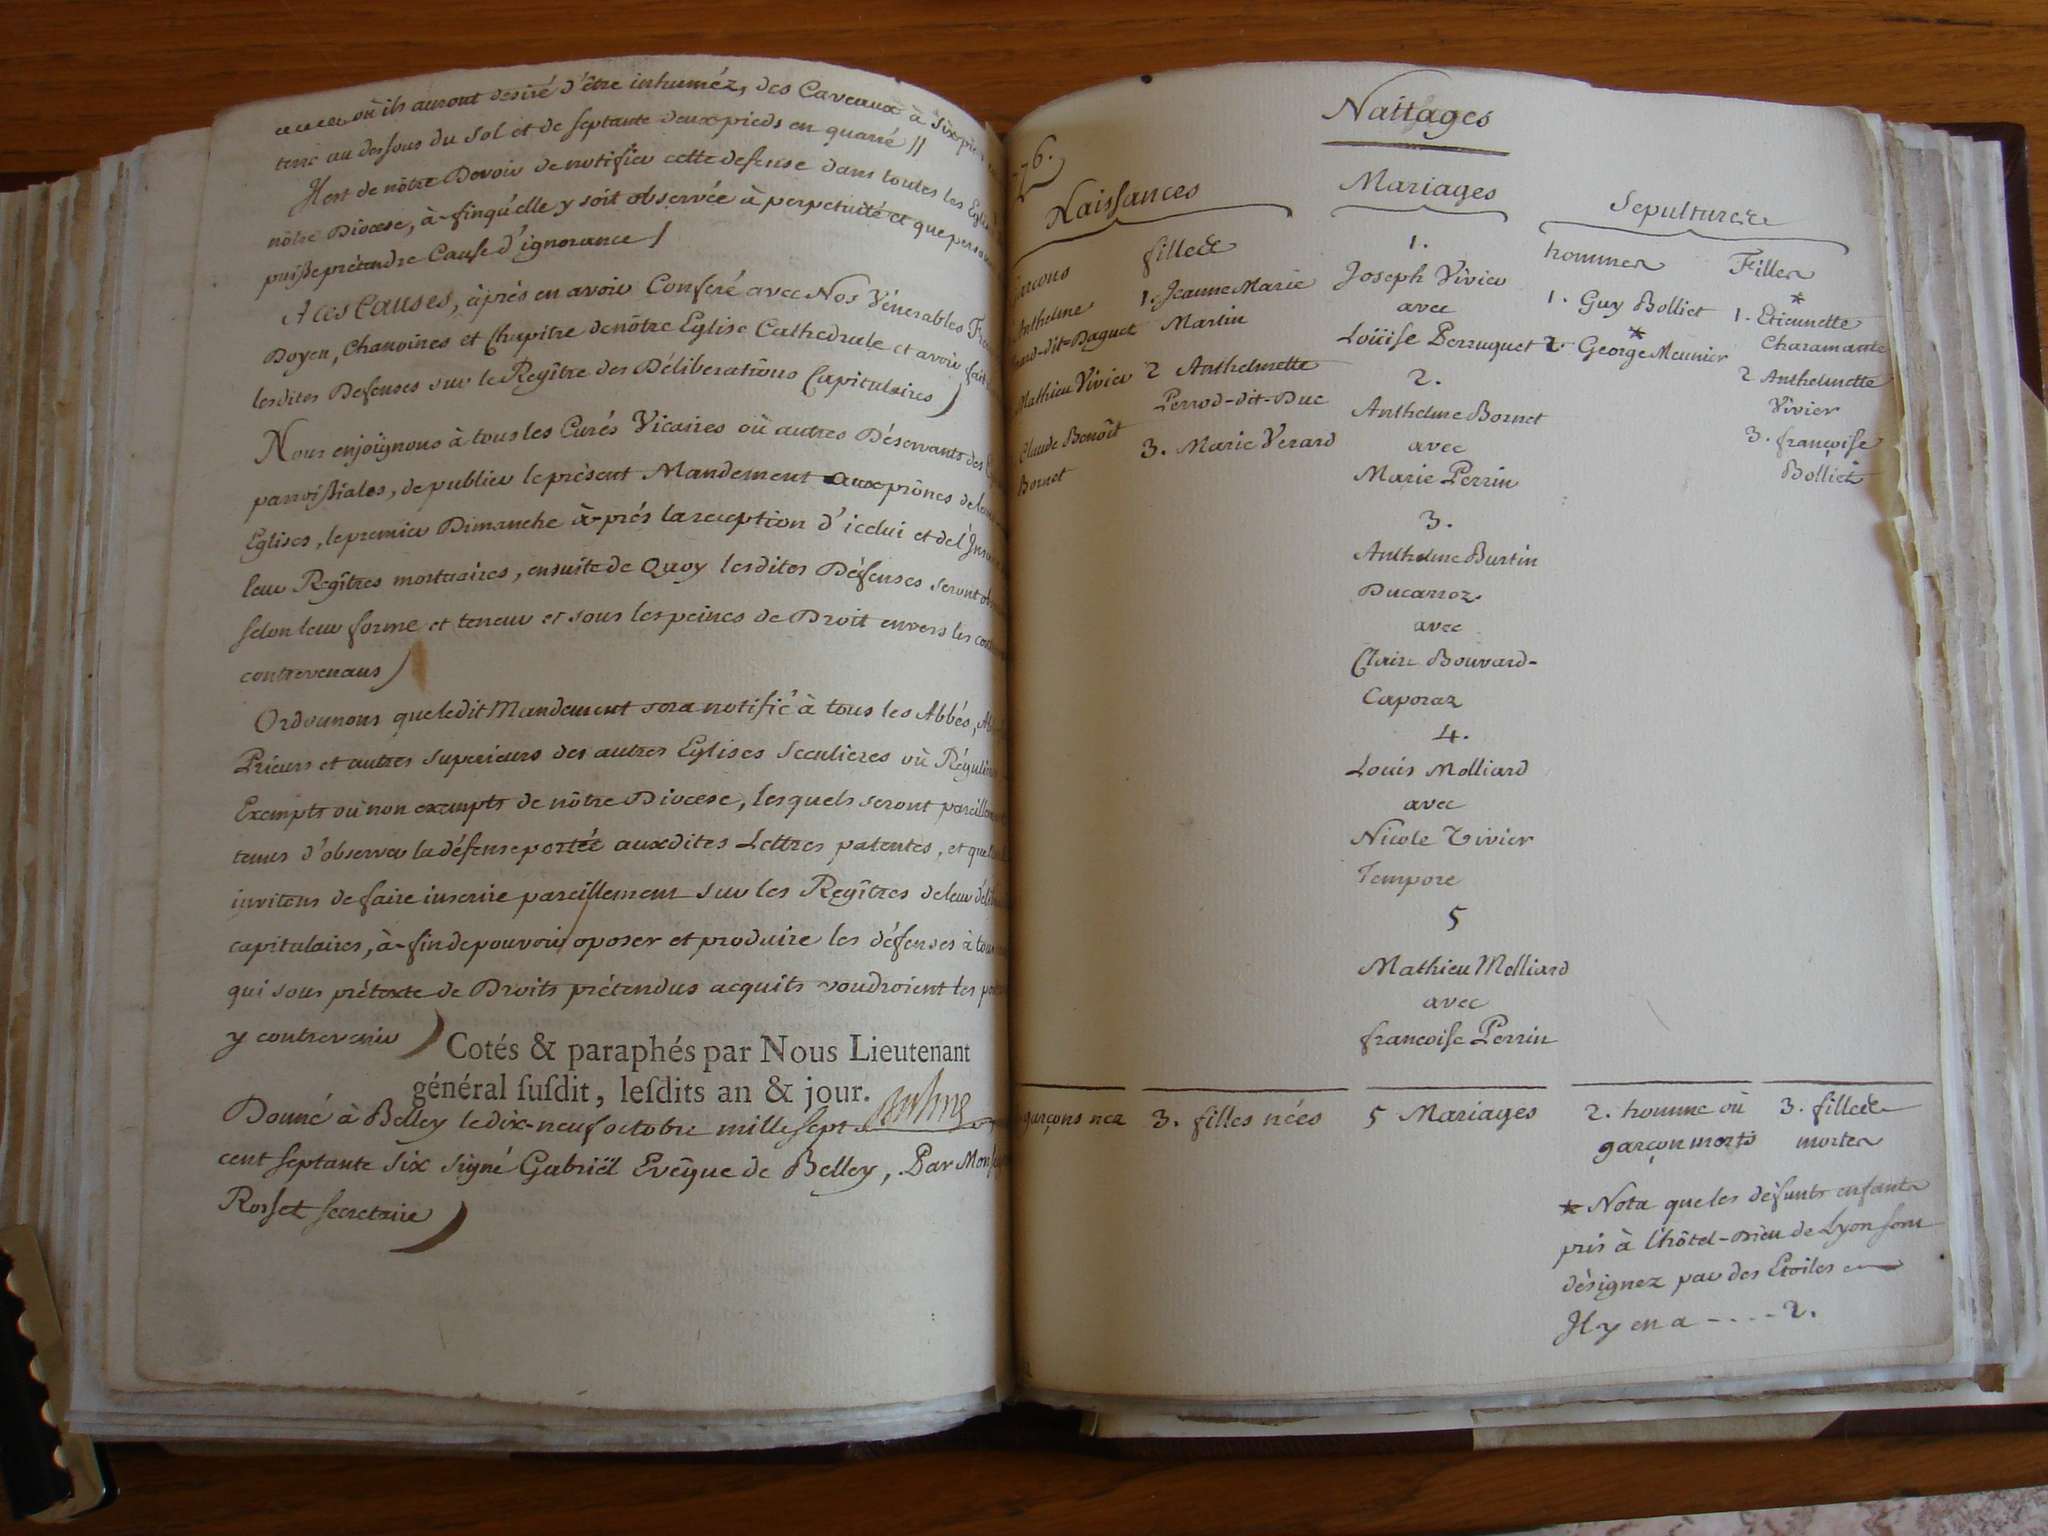 où ils auront desiré d'être inhuméz, des Caveaux à six pieds
terre au dessous du Sol et de septante deux pieds en quarré //
Il est de nôtre Devoir de notifier cette defense dans toutes les
nôtre Diocese, à-finqu'elle y soit observée à perpetuité et que
puisse prétendre Cause d'ignorance /
A ces Causes, àprés en avoir Conferé avec Nos Vénerables
Doyen, Chanoines et Chapitre de nôtre Eglise Cathedrale et avoir fait
lesdites Defenses sur le Regître des Déliberations Capitulaires )
Nous enjoignons à tous les Curés Vicaires où autres Déservants des
paroissiales, de publier le présent Mandement aux prônes de
Eglises, le premier Dimanche à-prés la reception d'icelui et de l'
leur Regîtres mortuaires, ensuite de Quoy lesdites Défenses seront
selon leur forme et teneur et sous les peines de Droit envers les
contrevenans )
Ordonnons que ledit Mandement sera notifié à tous les Abbés,
Prieurs et autres Superieurs des autres Eglises Seculieres où
Exempts où non exempts de nôtre Diocese, lesquels seront
tenus d'observer la défense portée auxdites Lettres patentes, et que
invitons de faire inscrire pareillement sur les Regîtres de leur
capitulaires, à-fin de pouvoir oposer et produire les défenses à
qui sous prétexte de Droits prétendus acquits voudroient les
y contrevenir )
Cotés & paraphés par Nous Lieutenant
général susdit, lesdits an & jour.
Donné à Belley le dix-neuf octobre mille sept
cent septante six signé Gabriël Evêque de Belley, Par
Rosset secretaire )
Nattages
76.
Naissances
Mariages
Sepultures
garcons
filles
hommes
Filles
Anthelme
-dit-Daguet
Mathieu Vivier
Claude Benoît
Bornet
1. Jeanne Marie
Martin
2 Anthelmette
Perrod-dit-Duc
3. Marie Verard
1.
Joseph Vivier
avec
Loüise Perruquet
2.
Anthelme Bornet
avec
Marie Perrin
3.
Anthelme Burtin
Ducarroz
avec
Claire Bouvard-
Caporaz
4.
Louis Molliard
avec
Nicole Vivier
Tempore
5
Mathieu Molliard
avec
francoise Perrin
1. Guy Bolliet
*
2. George Meunier
*
1. Etiennette
Charamante
2 Anthelmette
Vivier
3. francoise
Bolliet
garçons nez
3. filles nées
5 Mariages
2. homme où
garçon morts
3. filles
mortes
* Nota que les défunts enfants
pris à l'hôtel-Dieu de Lyon sont
désignez par des Etoiles
Il y en a - . . - 2.